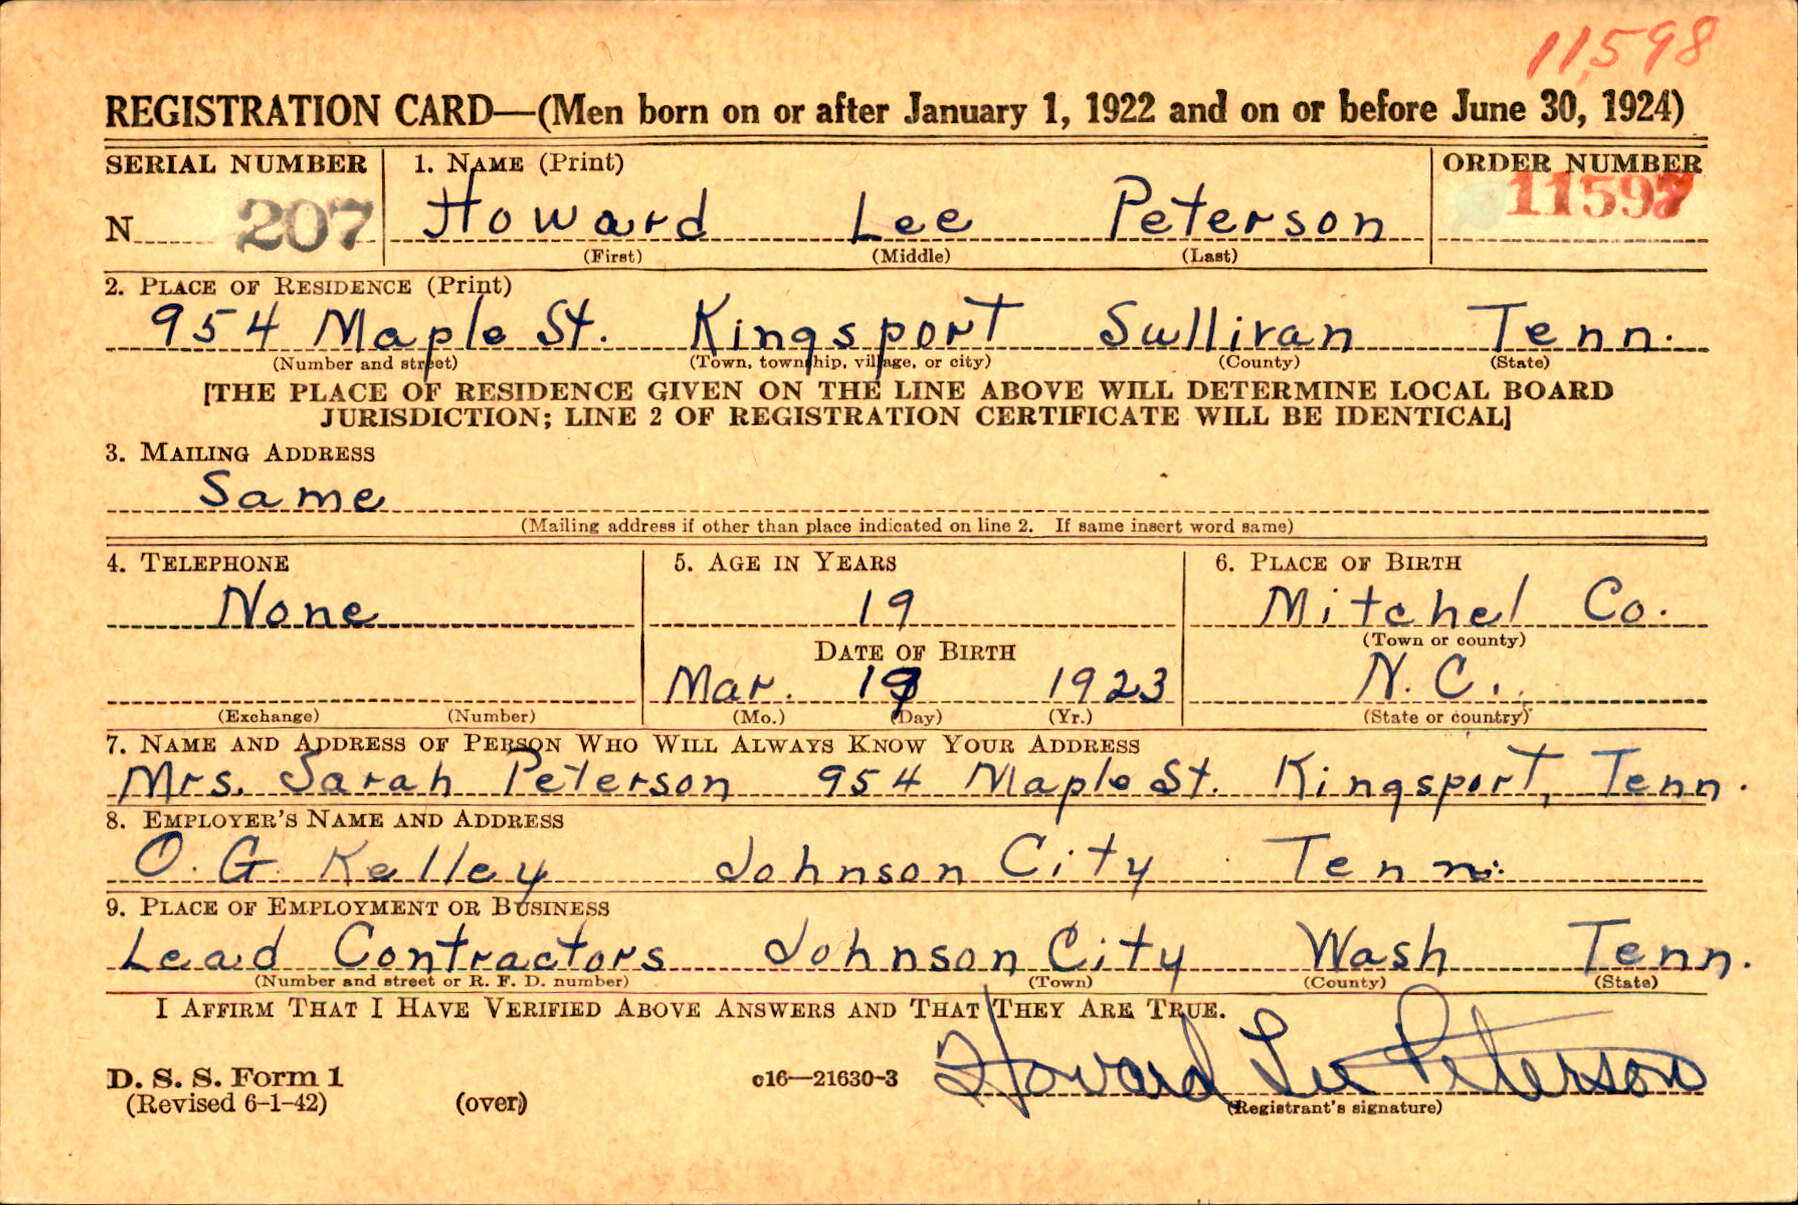 11,598
REGISTRATION CARD—(Men born on or after January 1, 1922 and on or before June 30, 1924)
SERIAL NUMBER 1. NAME (Print) ORDER NUMBER
N 207 Howard Lee Peterson
(First) (Middle) (Last)
2. PLACE OF RESIDENCE (Print)
954 Maple St. Kingsport Sullivan Tenn.
(Number and street) (Town, township, village, or city) (County) (State)
[THE PLACE OF RESIDENCE GIVEN ON THE LINE ABOVE WILL DETERMINE LOCAL BOARD
JURISDICTION; LINE 2 OF REGISTRATION CERTIFICATE WILL BE IDENTICAL]
3. MAILING ADDRESS
Same
(Mailing address if other than place indicated on line 2. If same insert word same)
4. TELEPHONE 5. AGE IN YEARS 6. PLACE OF BIRTH
None 19 Mitchel Co.
DATE OF BIRTH (Town or county)
Mar. 1923 N. C.
(Exchange) (Number) (Mo.) (Day) (Yr.) (State or country)
7. NAME AND ADDRESS OF PERSON WHO WILL ALWAYS KNOW YOUR ADDRESS
Mrs. Sarah Peterson 954 Maple St. Kingsport, Tenn.
8. EMPLOYER'S NAME AND ADDRESS
O. G. Kelley Johnson City Tenn.
9. PLACE OF EMPLOYMENT OR BUSINESS
Lead Contractors Johnson City Wash Tenn.
(Number and street or R. F. D. number) (Town) (County) (State)
I AFFIRM THAT I HAVE VERIFIED ABOVE ANSWERS AND THAT THEY ARE TRUE.
D. S. S. Form 1 c16—21630-3 Howard Lee Peterson
(Revised 6-1-42) (over) (Registrant's signature)